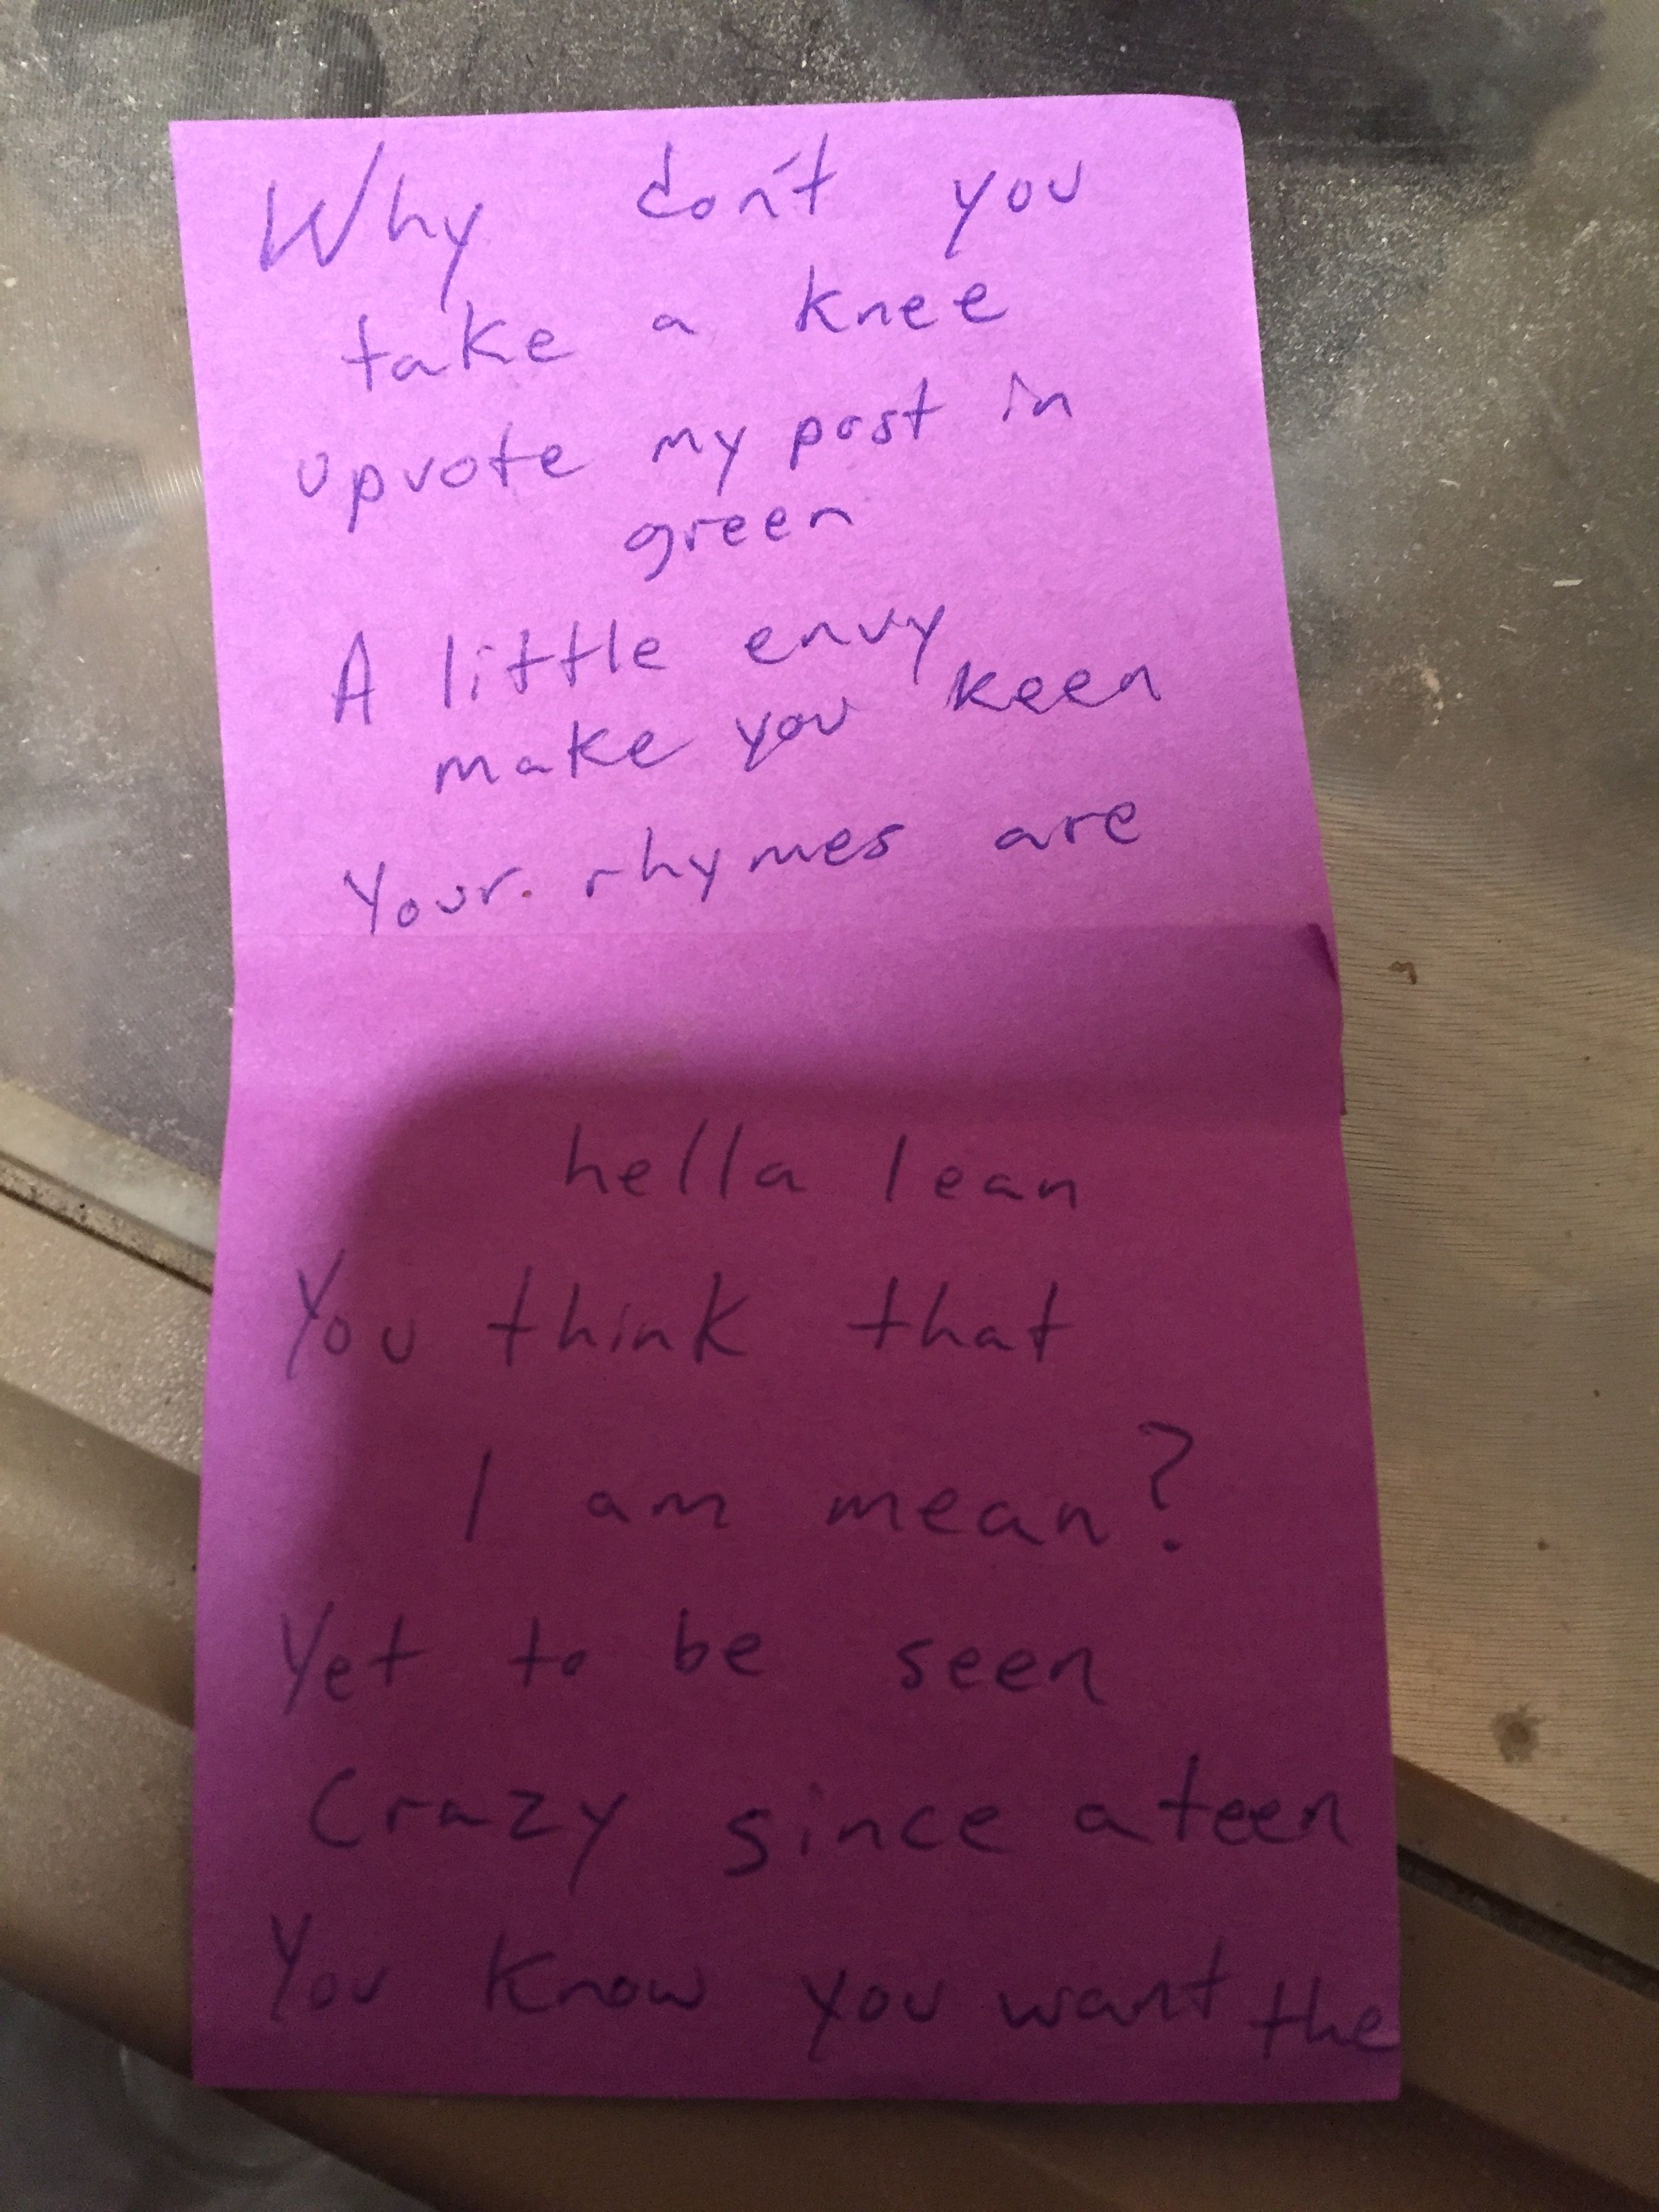 Why don't you
take a knee
upvote my post in
green
A little envy
make you keen
Your rhymes are
hella lean
You think that
I am mean?
Yet to be seen
Crazy since a teen
You know you want the